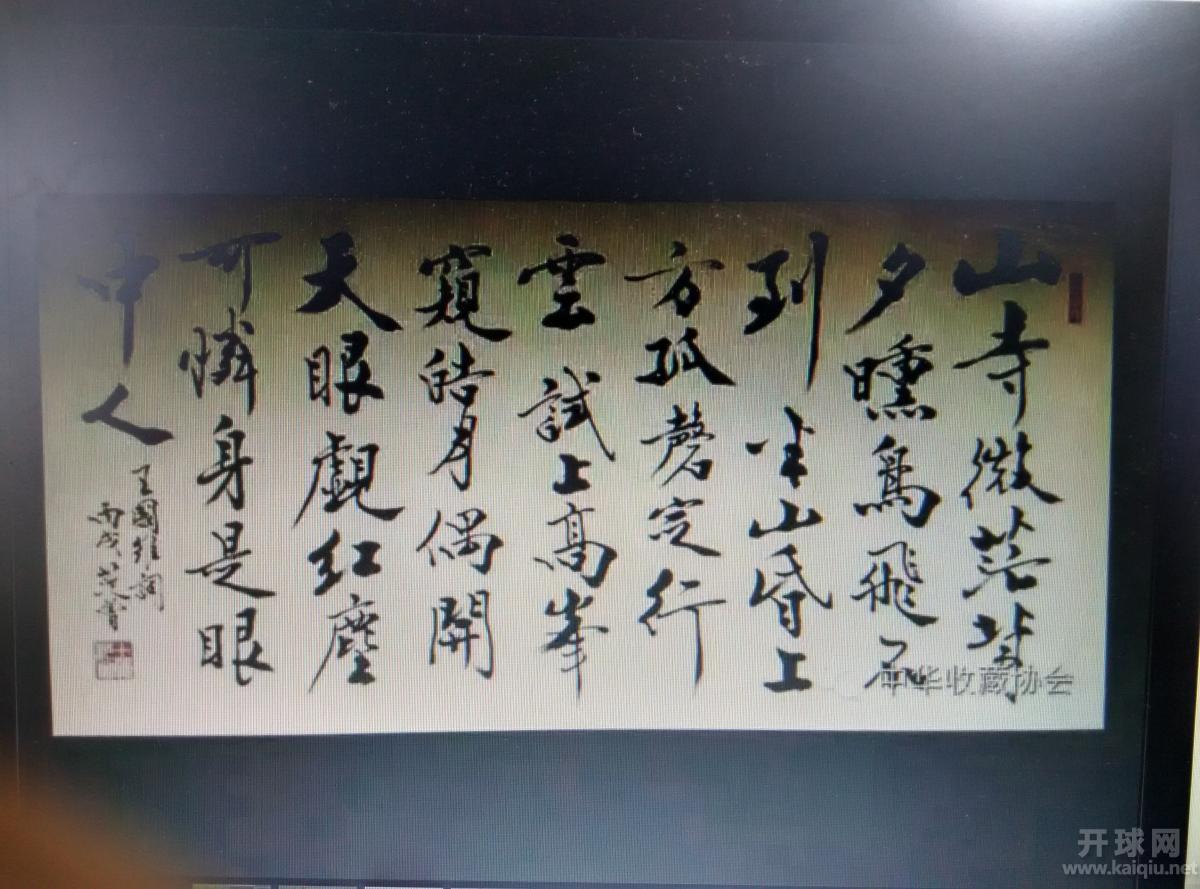 山寺微茫背
夕曛鳥飛不
到半山昏上
方孤磬定行
雲試上高峯
窺皓月偶開
天眼覷红塵
可憐身是眼
中人
王國維詞
丙戌 書
中华收藏协会
开球网
www.kaiqiu.net